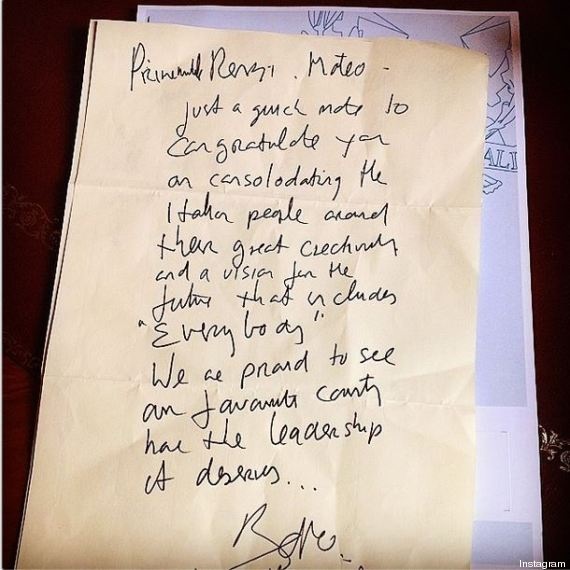 Renzi. Mateo -
just a quick note to
congratulate you
on consolodating the
Italian people around
their great creativity
and a vision for the
future that includes
"Everybody"
We are proud to see
our favourite country
have the leadership
it deserves...
Bono
ALI
Instagram